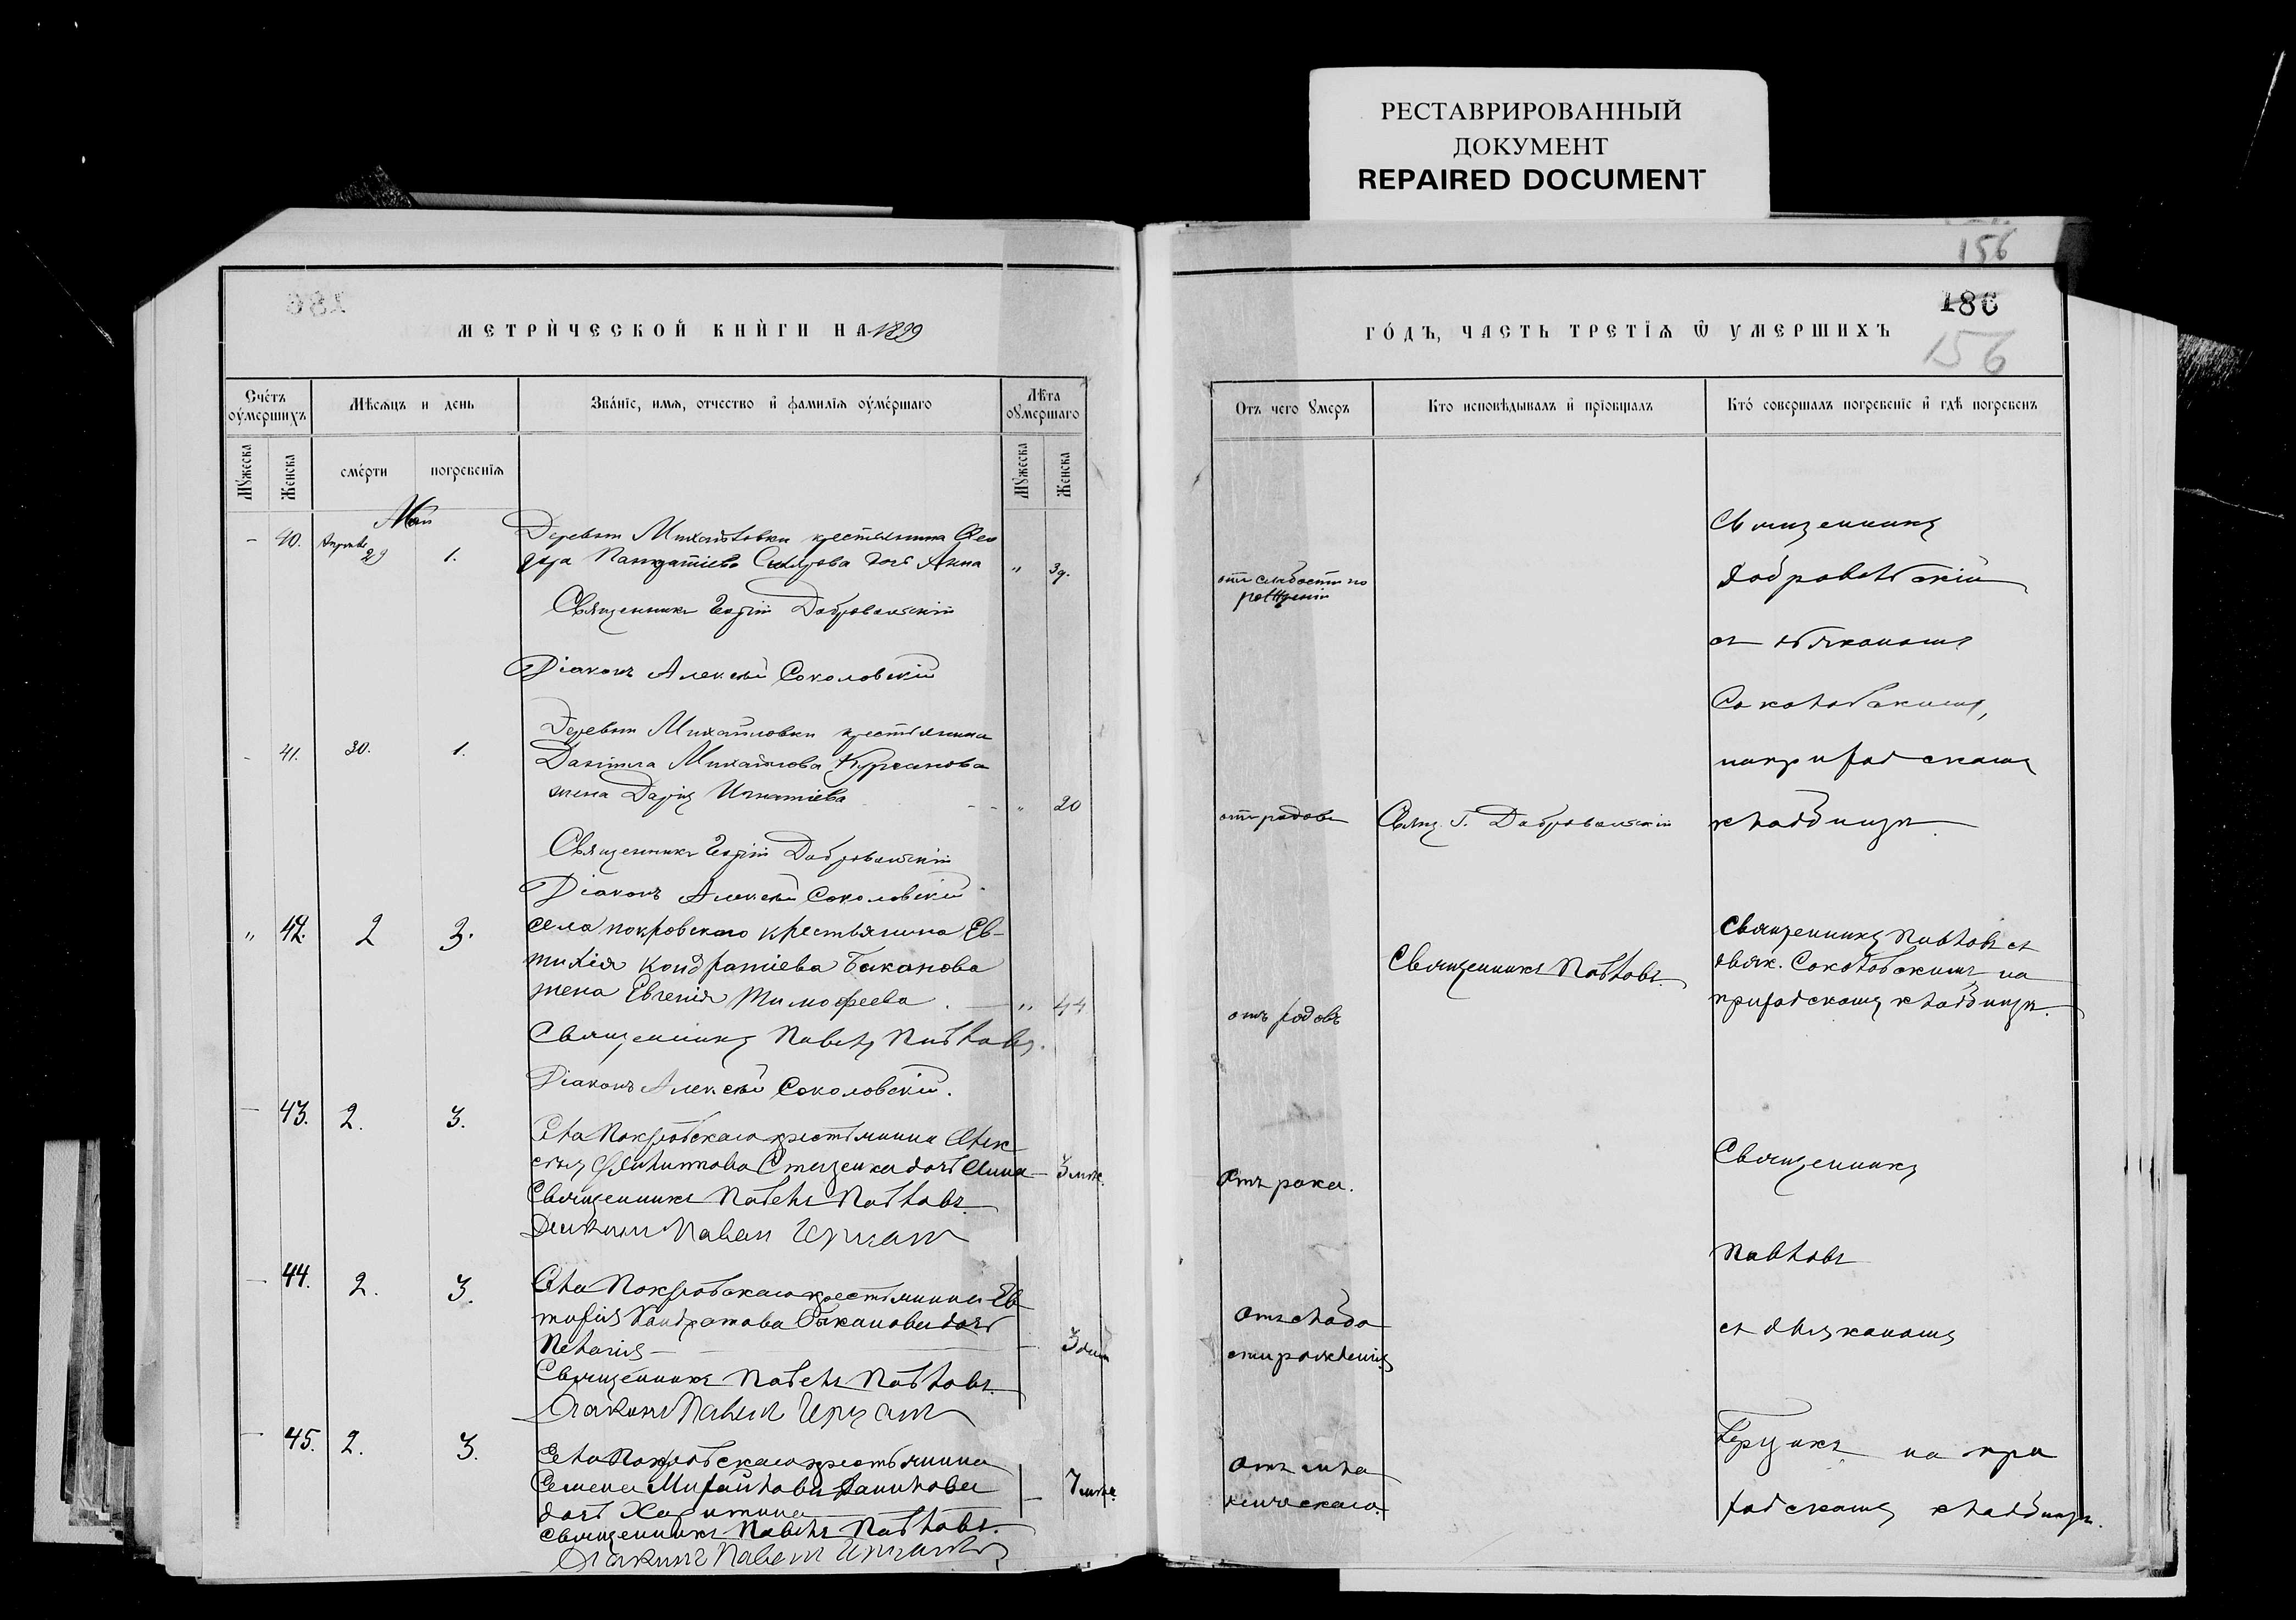 РЕСТАВРИРОВАННЫЙ
ДОКУМЕНТ
REPAIRED DOCUMENT
156
186
156
МЕТРИ́ЧЕСКОЙ КНИ́ГИ НА 1899
ГО́ДЪ, ЧАСТЬ ТРЕТІѦ Ѿ УМЕРШИХЪ
Счетъ оумершихъ
Мѣсяцъ и день
Званіе, имя, отчество и фамилія оумершаго
Лѣта оумершаго
Мужеска
Женска
смерти
погребенія
Мужеска
Женска
Отъ чего умеръ
Кто исповѣдывалъ и пріобщалъ
Кто совершалъ погребеніе и гдѣ погребенъ
Май
- 40. Апрѣля 29 1.
Деревни Михайловки крестьянина Ѳео
дора Панкратіева дочь Анна " 3 д.
Священникъ Георгій Добровольскій
Діаконъ Алексѣй Соколовскій
отъ слабости по
рожденіи
Священникъ
Добровольскій
съ діакономъ
Соколовскимъ,
на приходскомъ
кладбищѣ.
- 41. 30. 1.
Деревни Михайловки крестьянина
Даніила Михайлова Курганова
жена Дарія Игнатіева - - " 20
Священникъ Георгій Добровольскій
Діаконъ Алексѣй Соколовскій
отъ родовъ
Свящ. Г. Добровольскій
" 42. 2 3.
села покровскаго крестьянина Ев-
тихія Кондратіева Баканова
жена Евгенія Тимофеева. " 44
Священникъ Павелъ Павловъ.
Діаконъ Алексѣй Соколовскій.
отъ родовъ
Священникъ Павловъ.
Священникъ Павловъ съ
діак. Соколовскимъ на
приходскомъ кладбищѣ.
- 43. 2. 3.
Села Покровскаго крестьянина Алек
сѣя Филиппова Стаценка дочь Анна - 3 мѣс.
Священникъ Павелъ Павловъ.
Діаконъ Павелъ
Отъ рака.
Священникъ
Павловъ
съ діакономъ
на при
ходскомъ кладбищѣ.
- 44. 2. 3.
Села Покровскаго крестьянина Ев
тихія Кондратова Баканова дочь
Пелагія - - 3 дня
Священникъ Павелъ Павловъ.
Діаконъ Павелъ
Отъ слабо
сти рожденія
- 45. 2. 3.
Села Покровскаго крестьянина
Семена Михайлова Данилова
дочь Харитина - 7 мѣс.
Священникъ Павелъ Павловъ.
Діаконъ Павелъ
Отъ мла
денческаго.